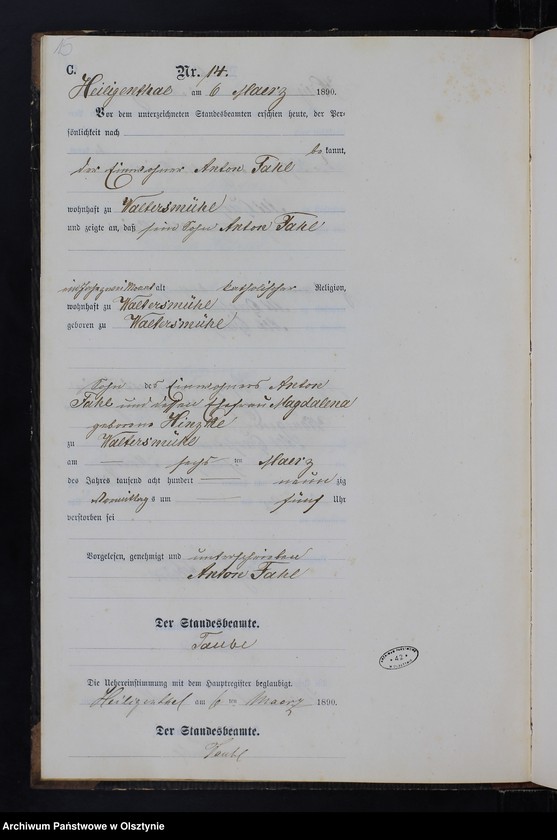 C.
Nr. 14.
Heiligenthal am 6 Maerz 1890.
Vor dem unterzeichneten Standesbeamten erschien heute, der Per-
sönlichkeit nach
be kannt,
der Einwohner Anton Fahl
wohnhaft zu Waltersmühl
und zeigte an, daß sein Sohn Anton Fahl
alt katholischer Religion,
wohnhaft zu Waltersmühl
geboren zu Waltersmühl
Sohn des Einwohners Anton
Fahl und dessen Ehefrau Magdalena
geborene
zu Waltersmühl
am sechs ten Maerz
des Jahres tausend acht hundert neun zig
Vormittags um fünf Uhr
verstorben sei
Vorgelesen, genehmigt und unterschrieben
Anton Fahl
Der Standesbeamte.
Taube
Die Uebereinstimmung mit dem Hauptregister beglaubigt.
Heiligenthal am 6 ten Maerz 1890.
Der Standesbeamte.
Taube
Archiwum Państwowe w Olsztynie